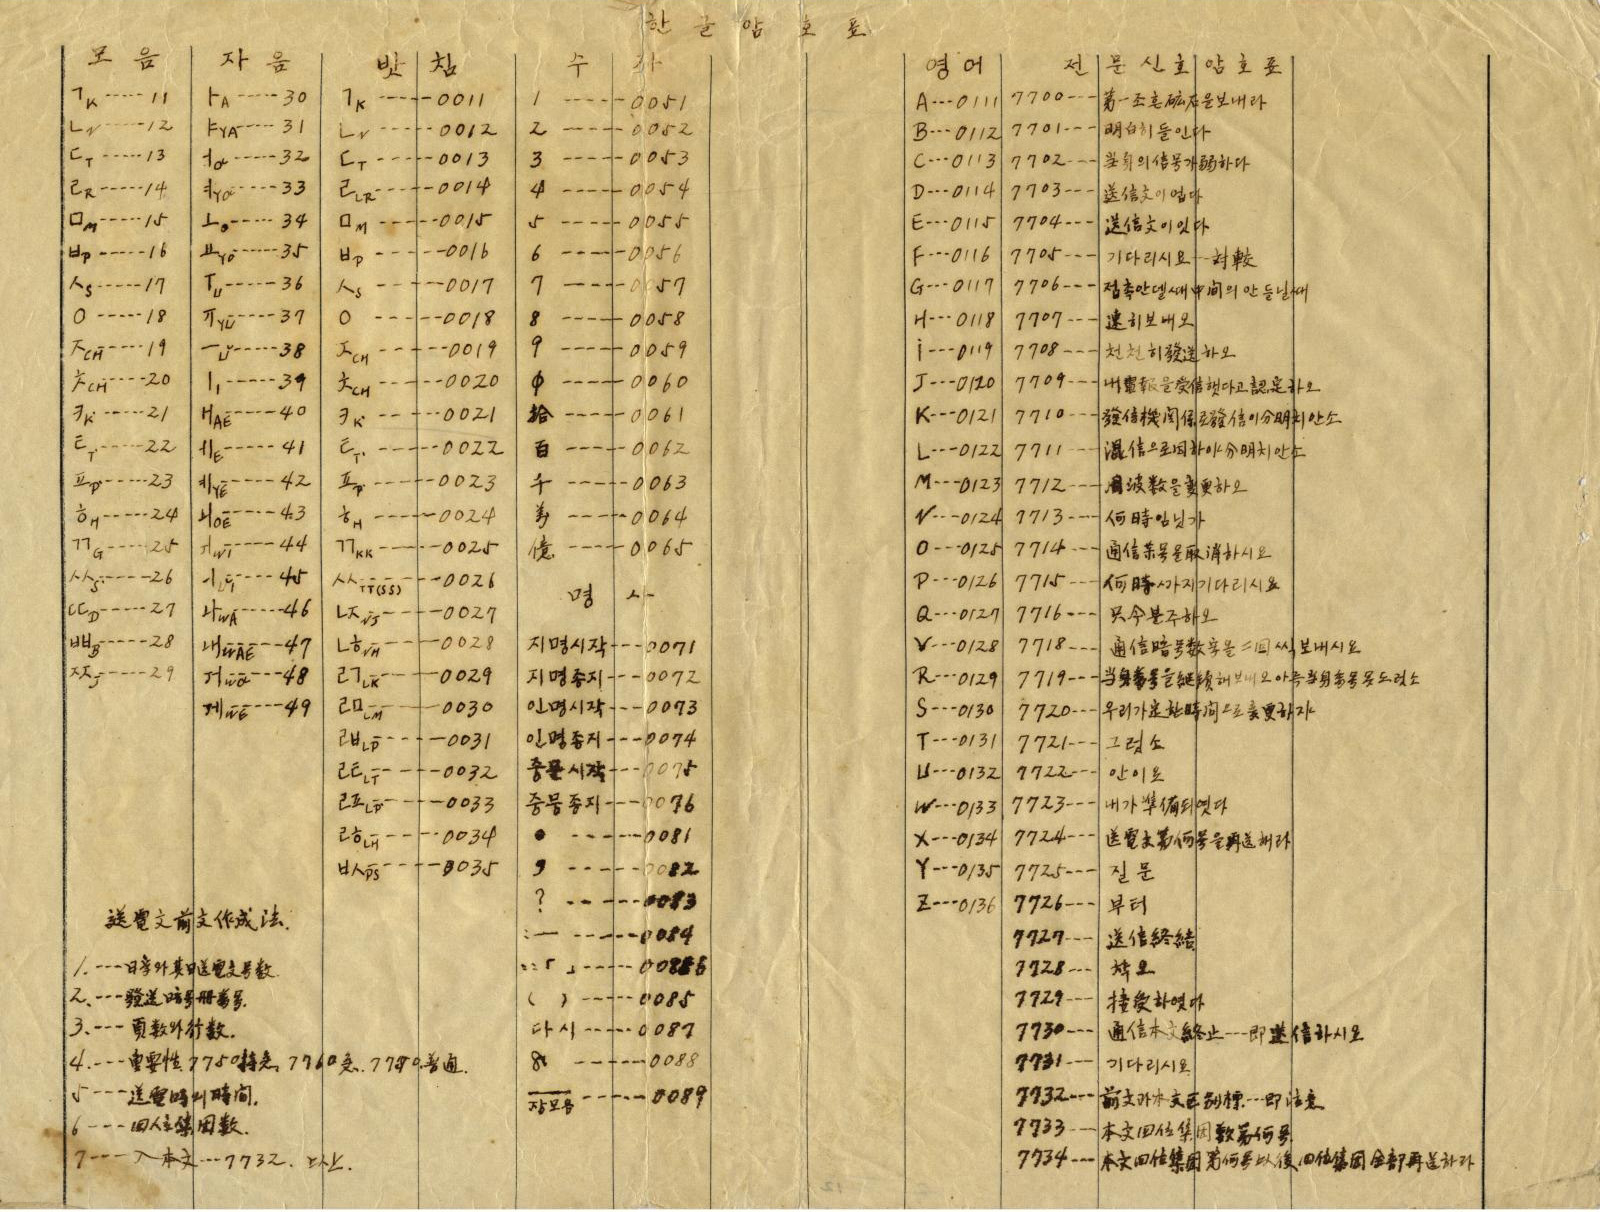 한글암호표
모음 자음 받침 수자
ㄱK-----11 ㅏA----30 ㄱK-----0011 1-----0051
ㄴN-----12 ㅑYA----31 ㄴN-----0012 2-----0052
ㄷT-----13 ㅓO----32 ㄷT-----0013 3-----0053
ㄹR-----14 ㅕYO----33 ㄹLR-----0014 4-----0054
ㅁM-----15 ㅗO----34 ㅁM-----0015 5-----0055
ㅂP-----16 ㅛYO----35 ㅂP-----0016 6-----0056
ㅅS-----17 ㅜU----36 ㅅS-----0017 7-----0057
ㅇ-----18 ㅠYU----37 ㅇ-----0018 8-----0058
ㅈCH----19 ㅡU----38 ㅈCH-----0019 9-----0059
ㅊCH----20 ㅣI----39 ㅊCH-----0020 0-----0060
ㅋK'----21 ㅐAE----40 ㅋK'-----0021 拾-----0061
ㅌT'----22 ㅔE----41 ㅌT'-----0022 百-----0062
ㅍP'----23 ㅖYE----42 ㅍP'-----0023 千-----0063
ㅎH-----24 ㅚOE----43 ㅎH-----0024 萬-----0064
ㄲG-----25 ㅟWI----44 ㄲKK-----0025 億-----0065
ㅆS-----26 ㅢUI----45 ㅆTT(SS)----0026
ㄸD-----27 ㅘWA----46 ㄵNJ-----0027 명사
ㅃB-----28 ㅙWAE----47 ㄶNH-----0028 지명시작---0071
ㅉJ-----29 ㅝWO----48 ㄺLK-----0029 지명종지---0072
ㅞWE----49 ㄻLM-----0030 인명시작---0073
ㄼLP-----0031 인명종지---0074
ㄾLT-----0032 중문시작---0075
ㄿLP-----0033 중문종지---0076
ㅀLH-----0034 ●-----0081
ㅄPS-----0035 ,-----0082
?-----0083
:—-----0084
-----00886
( )-----0085
다시-----0087
-----0088
장모음-----0089
送電文前文作成法.
1.---日字와其日送電文号數
2.---發送暗号冊番号.
3.---頁數와行數.
4.---重要性 7750特急, 7760急, 7770普通.
5---送電時의時間.
6---四人位集団數.
7---入本文---7732. 以上.
영어 전문신호암호표
A---0111 7700---第一조흔礦石을보내라
B---0112 7701---明白히들인다
C---0113 7702---当身의信号가弱하다
D---0114 7703---送信文이업다
E---0115 7704---送信文이잇다
F---0116 7705---기다리시요--対較
G---0117 7706---접촉안델때中间의안들닐때
H---0118 7707---速히보내오
i---0119 7708---천천히發送하오
J---0120 7709---내電報을受信햇다고認定하오
K---0121 7710---發信機関係로發信이分明치안소
L---0122 7711---混信으로因하야分明치안소
M---0123 7712---周波数을変更하오
N---0124 7713---何時임닛가
O---0125 7714---通信票号을取消하시오
P---0126 7715---何時까지기다리시요
Q---0127 7716---只今분주하오
V---0128 7718---通信暗号数字을二回씩보내시요
R---0129 7719---当身番号을継続해보내오아측当身番号못드럿소
S---0130 7720---우리가定한時间으로変更하자
T---0131 7721---그럿소
U---0132 7722---안이요
W---0133 7723---내가準備되엿다
X---0134 7724---送電文第何号을再送해라
Y---0135 7725---질문
Z---0136 7726---부터
7727---送信終結
7728---착오
7729---接受하엿다
7730---通信本文終止---即送信하시오
7731---기다리시요
7732---前文과本文区別標---即注意
7733---本文四位集団数第何号
7734---本文四位集団第何号以後四位集団全部再送하라